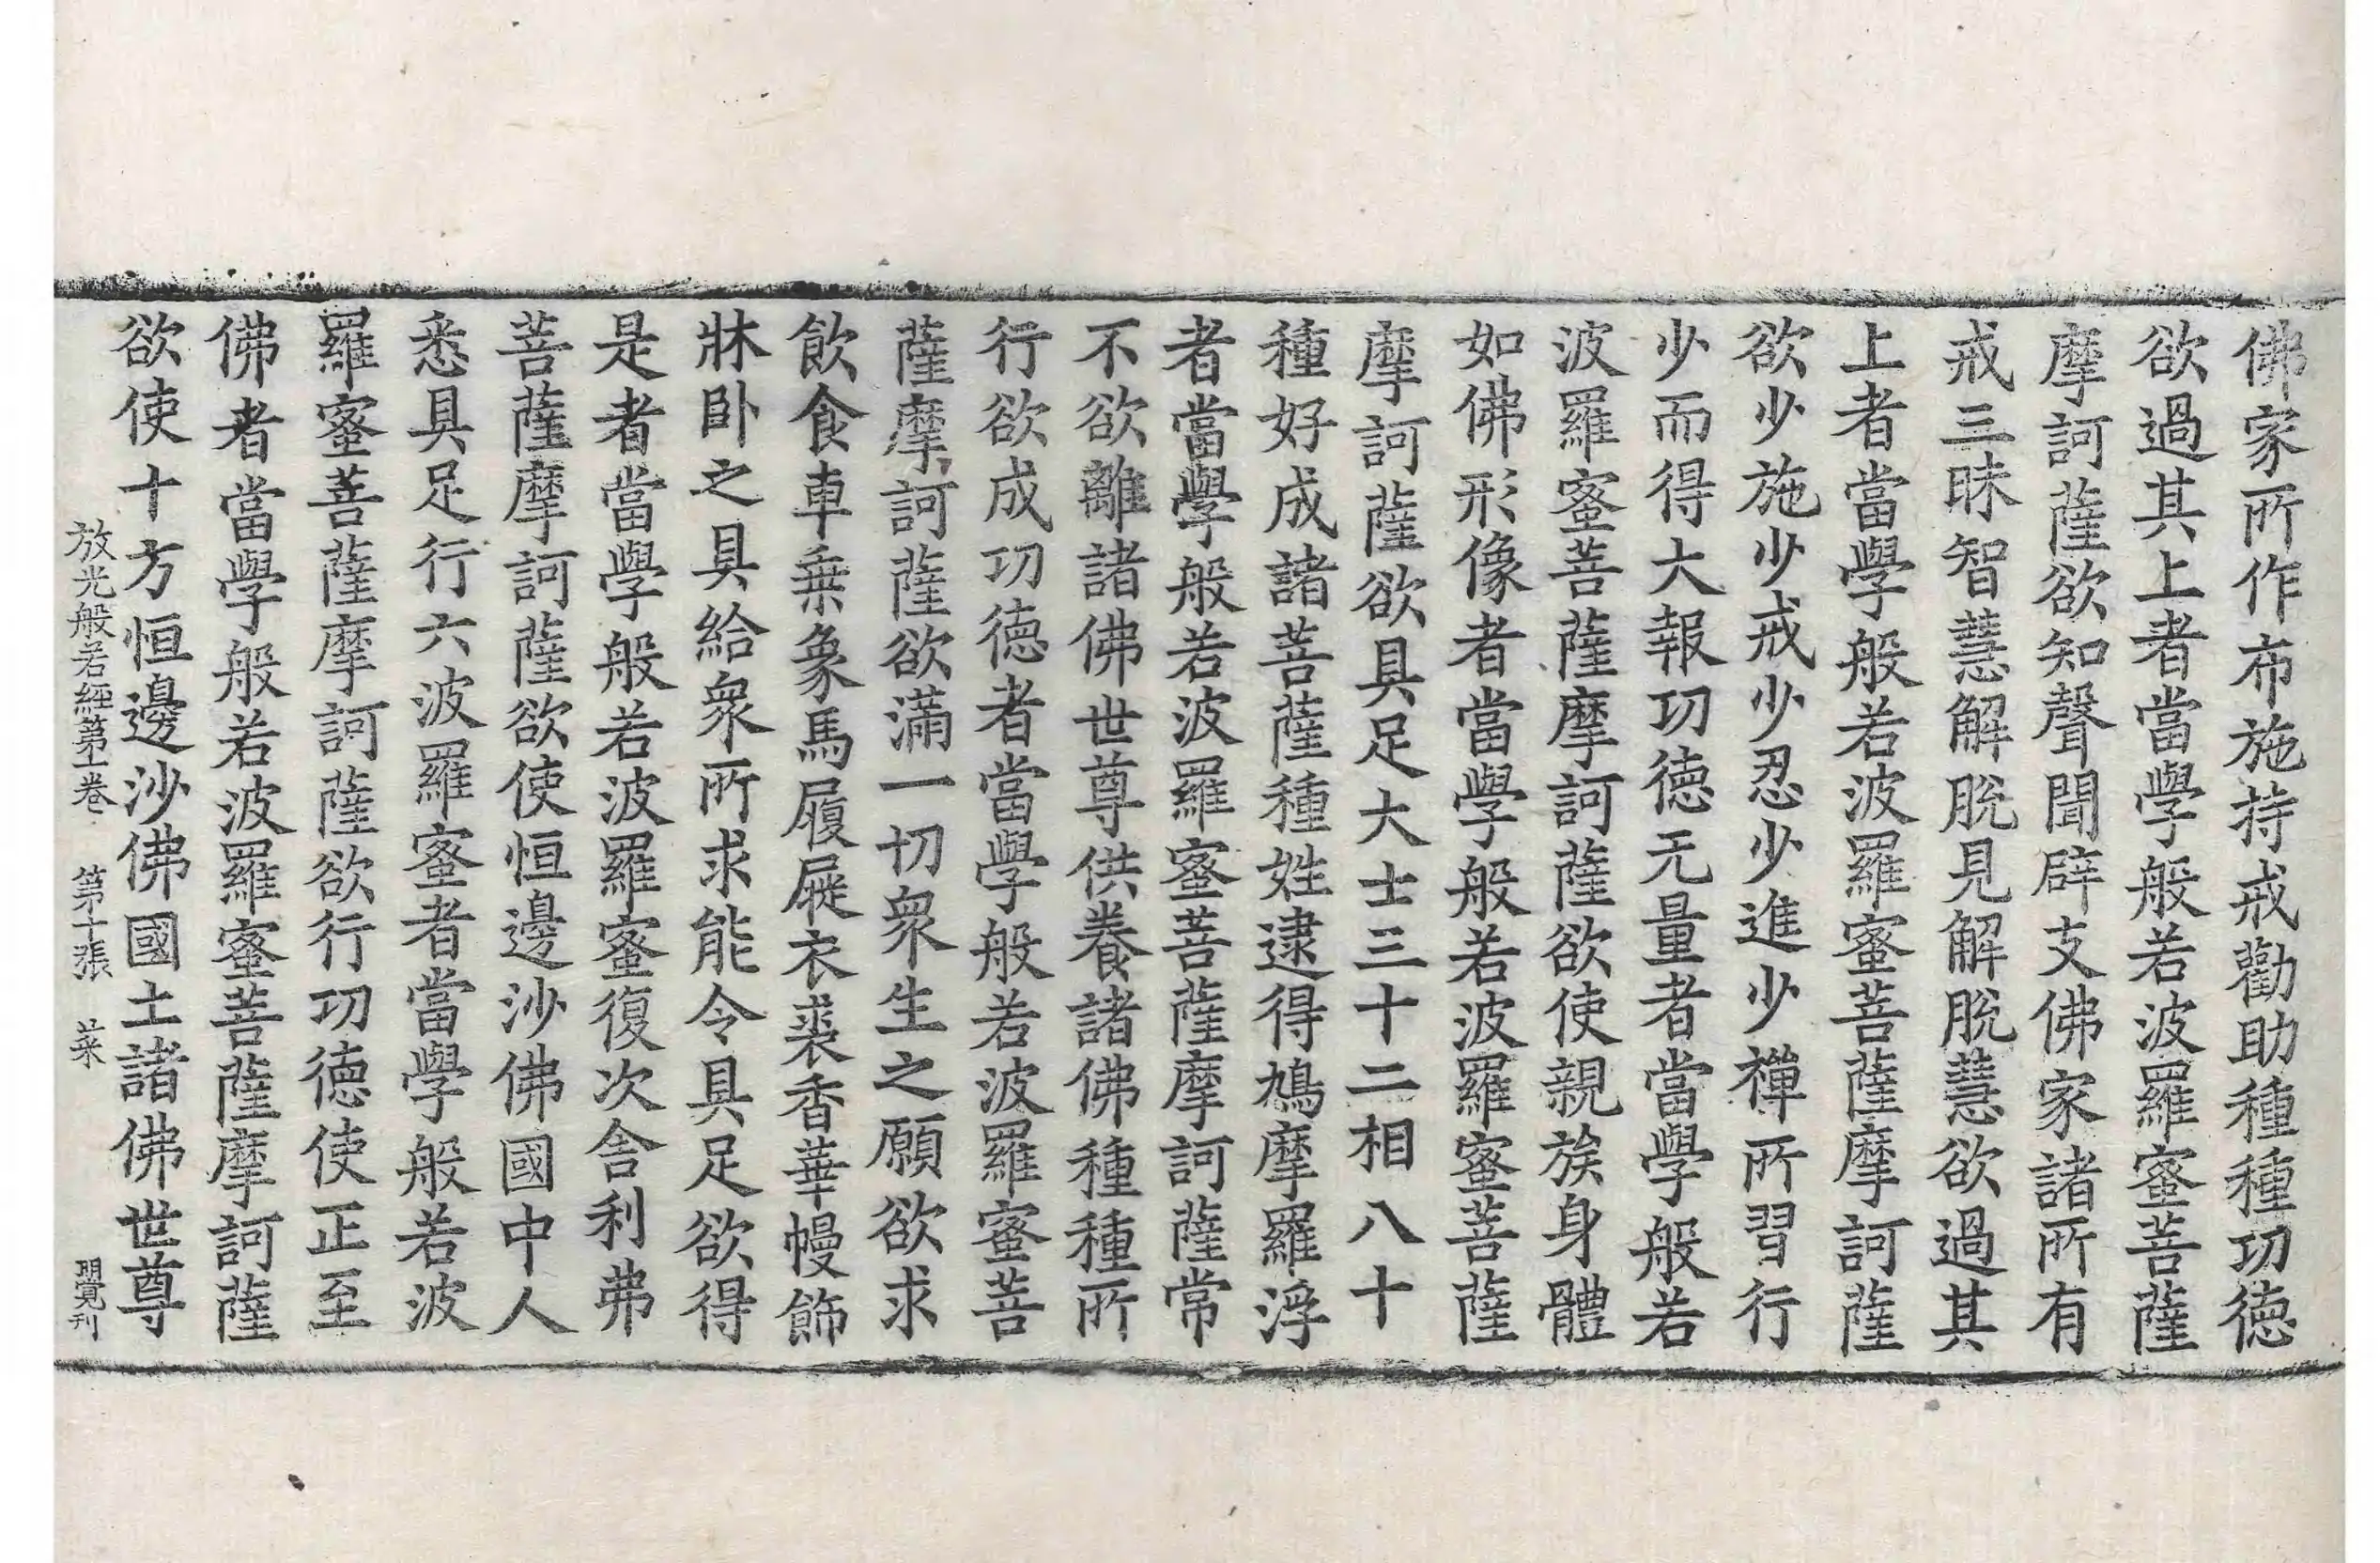 佛家所作布施持戒勸助種種功德
欲過其上者當學般若波羅蜜菩薩
摩訶薩欲知聲聞辟支佛家諸所有
戒三昧智慧解脫見解脫慧欲過其
上者當學般若波羅蜜菩薩摩訶薩
欲少施少戒少忍少進少禪所習行
少而得大報功德无量者當學般若
波羅蜜菩薩摩訶薩欲使親族身體
如佛形像者當學般若波羅蜜菩薩
摩訶薩欲具足大士三十二相八十
種好成諸菩薩種姓逮得鳩摩羅浮
者當學般若波羅蜜菩薩摩訶薩常
不欲離諸佛世尊供養諸佛種種所
行欲成功德者當學般若波羅蜜菩
薩摩訶薩欲滿一切衆生之願欲求
飲食車乗象馬履屣衣裘香華幔飾
牀卧之具給衆所求能令具足欲得
是者當學般若波羅蜜復次舍利弗
菩薩摩訶薩欲使恒邊沙佛國中人
悉具足行六波羅蜜者當學般若波
羅蜜菩薩摩訶薩欲行功德使正至
佛者當學般若波羅蜜菩薩摩訶薩
欲使十方恒邊沙佛國土諸佛世尊
放光般若經第一卷 第十張 菜 明覺刊